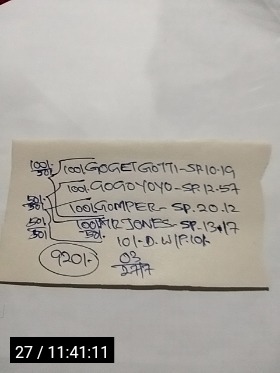 100/- 100/GOGETGOTTI-SP.10-19
50/-
100/-GOGOYOYO-SP.12-57
50/- 100/GOMPER-SP.20.12
50/-
50/- 100/MR JONES-SP.13.17
50/- 50/-
10/-D.W/P.10k
03
27/7
920/-
27 / 11:41:11